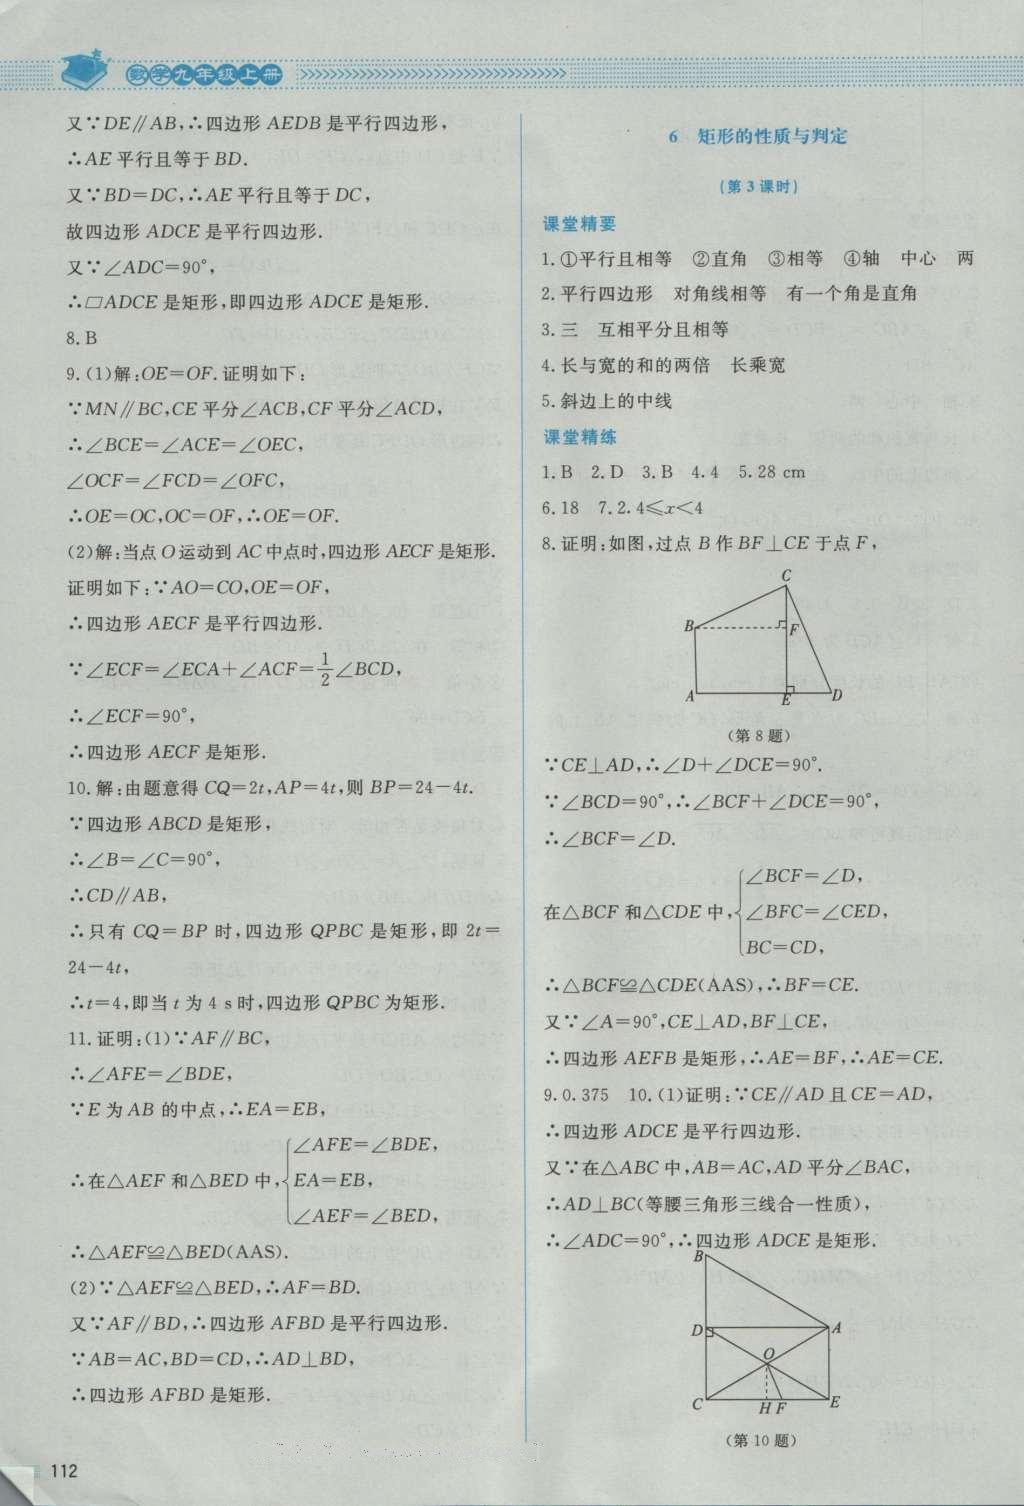 数学九年级上册
又∵DE∥AB,∴四边形 AEDB 是平行四边形,
∴AE 平行且等于 BD.
又∵BD=DC,∴AE 平行且等于 DC,
故四边形 ADCE 是平行四边形.
又∵∠ADC=90°,
∴▱ADCE 是矩形,即四边形 ADCE 是矩形.
8.B
9.(1)解:OE=OF.证明如下:
∵MN∥BC,CE 平分∠ACB,CF 平分∠ACD,
∴∠BCE=∠ACE=∠OEC,
∠OCF=∠FCD=∠OFC,
∴OE=OC,OC=OF,∴OE=OF.
(2)解:当点 O 运动到 AC 中点时,四边形 AECF 是矩形.
证明如下:∵AO=CO,OE=OF,
∴四边形 AECF 是平行四边形.
∵∠ECF=∠ECA+∠ACF=1/2∠BCD,
∴∠ECF=90°,
∴四边形 AECF 是矩形.
10.解:由题意得 CQ=2t,AP=4t,则 BP=24-4t.
∵四边形 ABCD 是矩形,
∴∠B=∠C=90°,
∴CD∥AB,
∴只有 CQ=BP 时,四边形 QPBC 是矩形,即 2t=
24-4t,
∴t=4,即当 t 为 4 s时,四边形 QPBC 为矩形.
11.证明:(1)∵AF∥BC,
∴∠AFE=∠BDE,
∵E 为 AB 的中点,∴EA=EB,
∠AFE=∠BDE,
∴在△AEF 和△BED 中,{EA=EB,
∠AEF=∠BED,
∴△AEF≌△BED(AAS).
(2)∵△AEF≌△BED,∴AF=BD.
又∵AF∥BD,∴四边形 AFBD 是平行四边形.
∵AB=AC,BD=CD,∴AD⊥BD,
∴四边形 AFBD 是矩形.
112
6 矩形的性质与判定
(第 3 课时)
课堂精要
1.①平行且相等 ②直角 ③相等 ④轴 中心 两
2.平行四边形 对角线相等 有一个角是直角
3.三 互相平分且相等
4.长与宽的和的两倍 长乘宽
5.斜边上的中线
课堂精练
1.B 2.D 3.B 4.4 5.28 cm
6.18 7.2.4≤x<4
8.证明:如图,过点 B 作 BF⊥CE 于点 F,
C
B F
A E D
(第 8 题)
∵CE⊥AD,∴∠D+∠DCE=90°.
∵∠BCD=90°,∴∠BCF+∠DCE=90°,
∴∠BCF=∠D.
∠BCF=∠D,
在△BCF 和△CDE 中,{∠BFC=∠CED,
BC=CD,
∴△BCF≌△CDE(AAS),∴BF=CE.
又∵∠A=90°,CE⊥AD,BF⊥CE,
∴四边形 AEFB 是矩形,∴AE=BF,∴AE=CE.
9.0.375 10.(1)证明:∵CE∥AD 且 CE=AD,
∴四边形 ADCE 是平行四边形.
又∵在△ABC 中,AB=AC,AD 平分∠BAC,
∴AD⊥BC(等腰三角形三线合一性质),
∴∠ADC=90°,∴四边形 ADCE 是矩形.
B
D A
O
C H F E
(第 10 题)